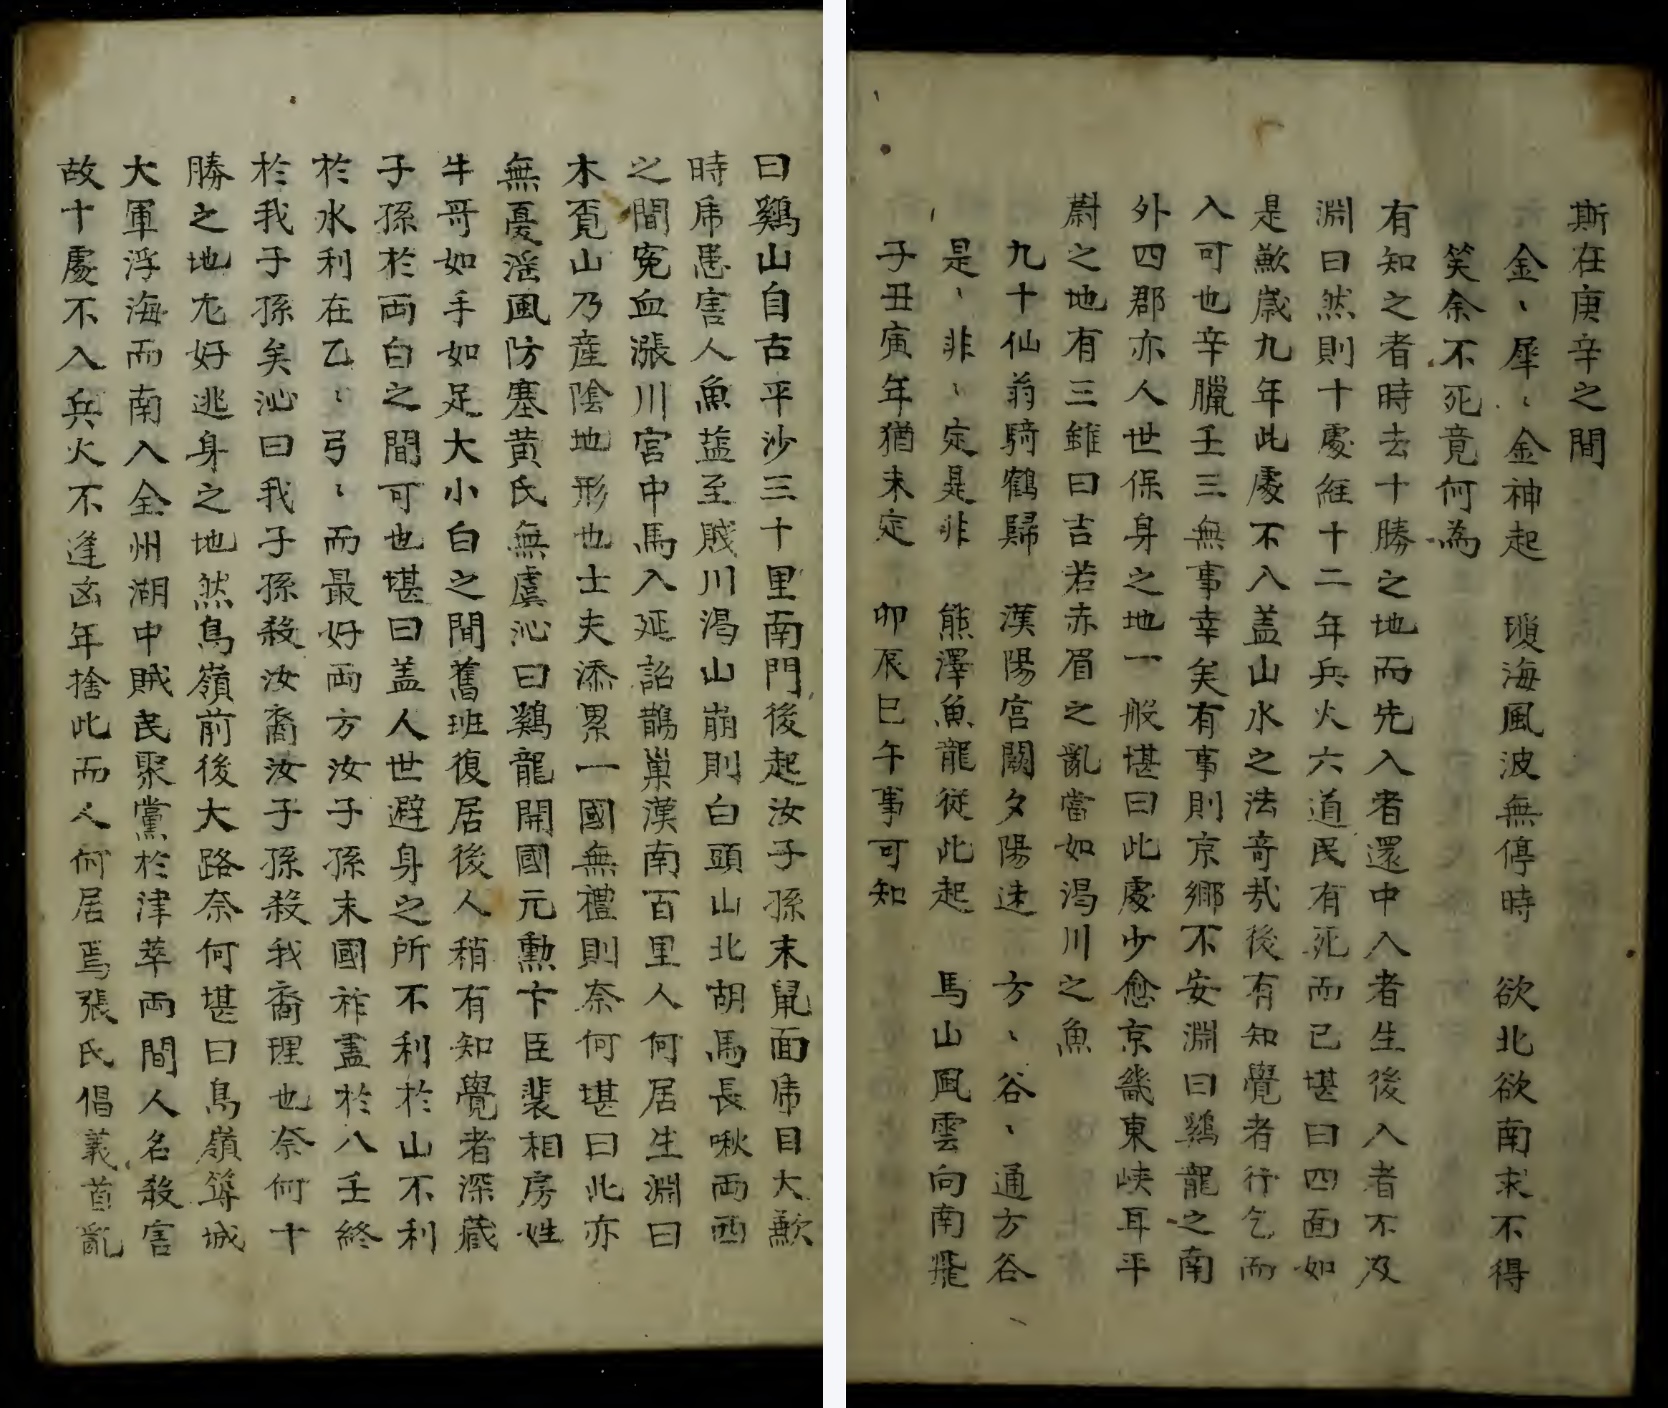 曰鷄山自古平沙三十里南門後起汝子孫末鼠面虎目大歉
時虎患害人魚盐至賎川渴山崩則白頭山北胡馬長啾両西
之間寃血漲川宮中馬入延詔鵲巢漢南百里人何居生淵曰
木覓山乃産陰地形也士夫添累一國無禮則奈何堪曰此亦
無憂淫風防塞黄氏無虞沁曰鷄龍開國元勳卞臣裴相房姓
牛哥如手如足大小白之間舊班復居後人稍有知覺者深藏
子孫於両白之間可也堪曰盖人世避身之所不利於山不利
於水利在乙〻弓〻而最好両方汝子孫末國祚盡於八壬終
於我子孫矣沁曰我子孫殺汝裔汝子孫殺我裔理也奈何十
勝之地尤好逃身之地然鳥嶺前後大路奈何堪曰鳥嶺築城
大軍浮海而南入全州湖中賊民聚黨於津萃両間人名殺害
故十處不入兵火不逢凶年捨此而人何居焉張氏倡義首亂
斯在庚辛之間
金〻犀〻金神起 瓊海風波無停時 欲北欲南求不得
笑余不死竟何為
有知之者時去十勝之地而先入者還中入者生後入者不及
淵曰然則十處経十二年兵火六道民有死而已堪曰四面如
是歉歳九年此處不入盖山水之法奇㢤後有知覺者行乞而
入可也辛臘壬三無事幸矣有事則京鄉不安淵曰鷄龍之南
外四郡亦人世保身之地一般堪曰此處少愈京畿東峽耳平
蔚之地有三雖曰吉若赤眉之亂當如渴川之魚
九十仙翁騎鶴歸 漢陽宮闕夕陽迷 方〻谷〻通方谷
是〻非〻定是非 熊澤魚龍従此起 馬山風雲向南飛
子丑寅年猶未定 卯辰巳午事可知